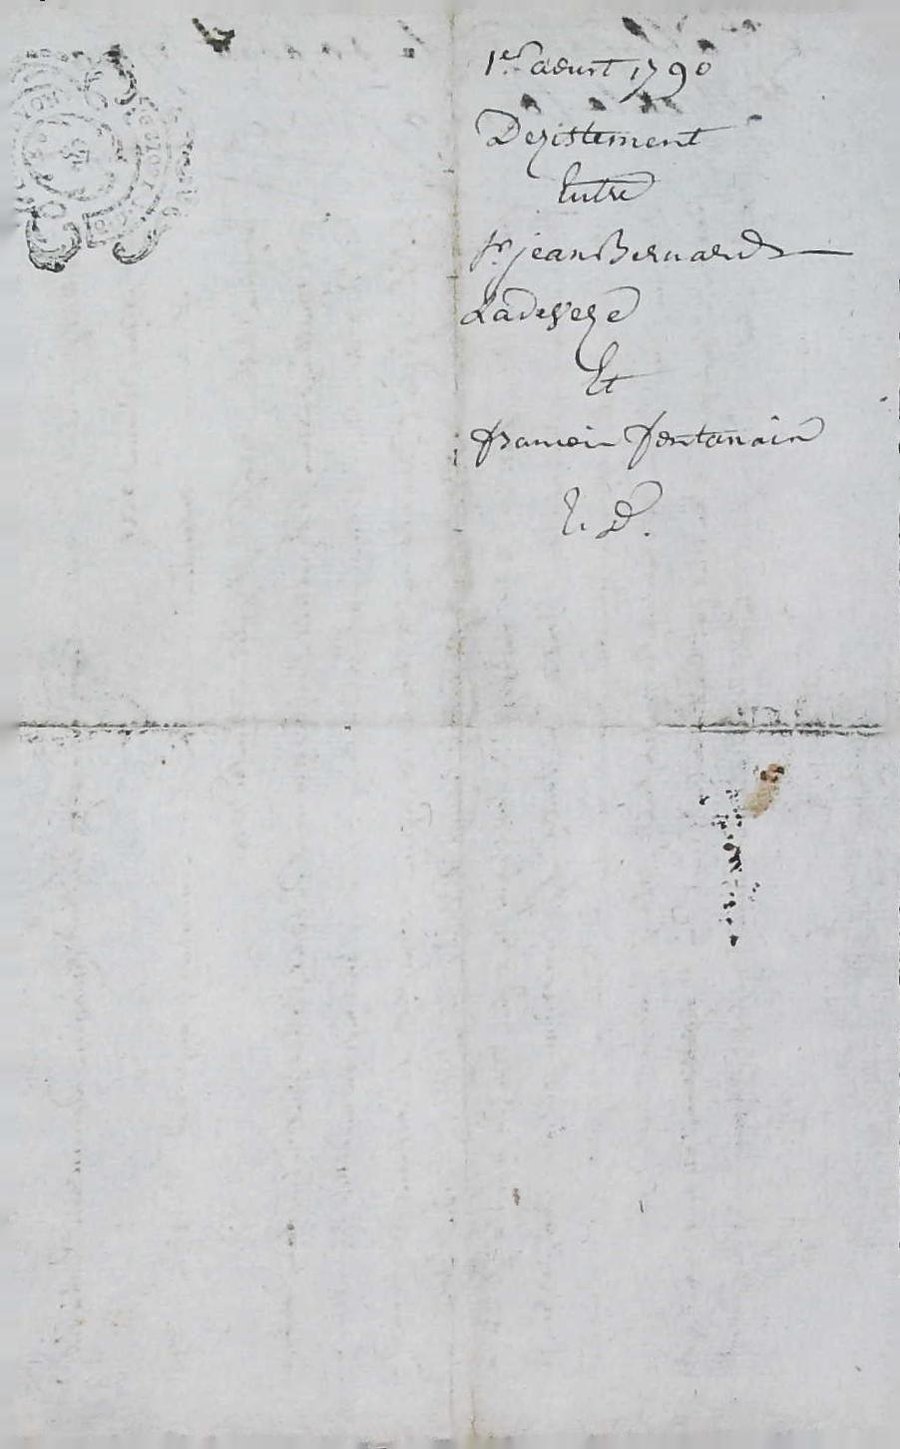 1er aoust 1790
Dezistement
Entre
Sr jean Bernard
Ladeveze
Et
francois fontanain
E. D.